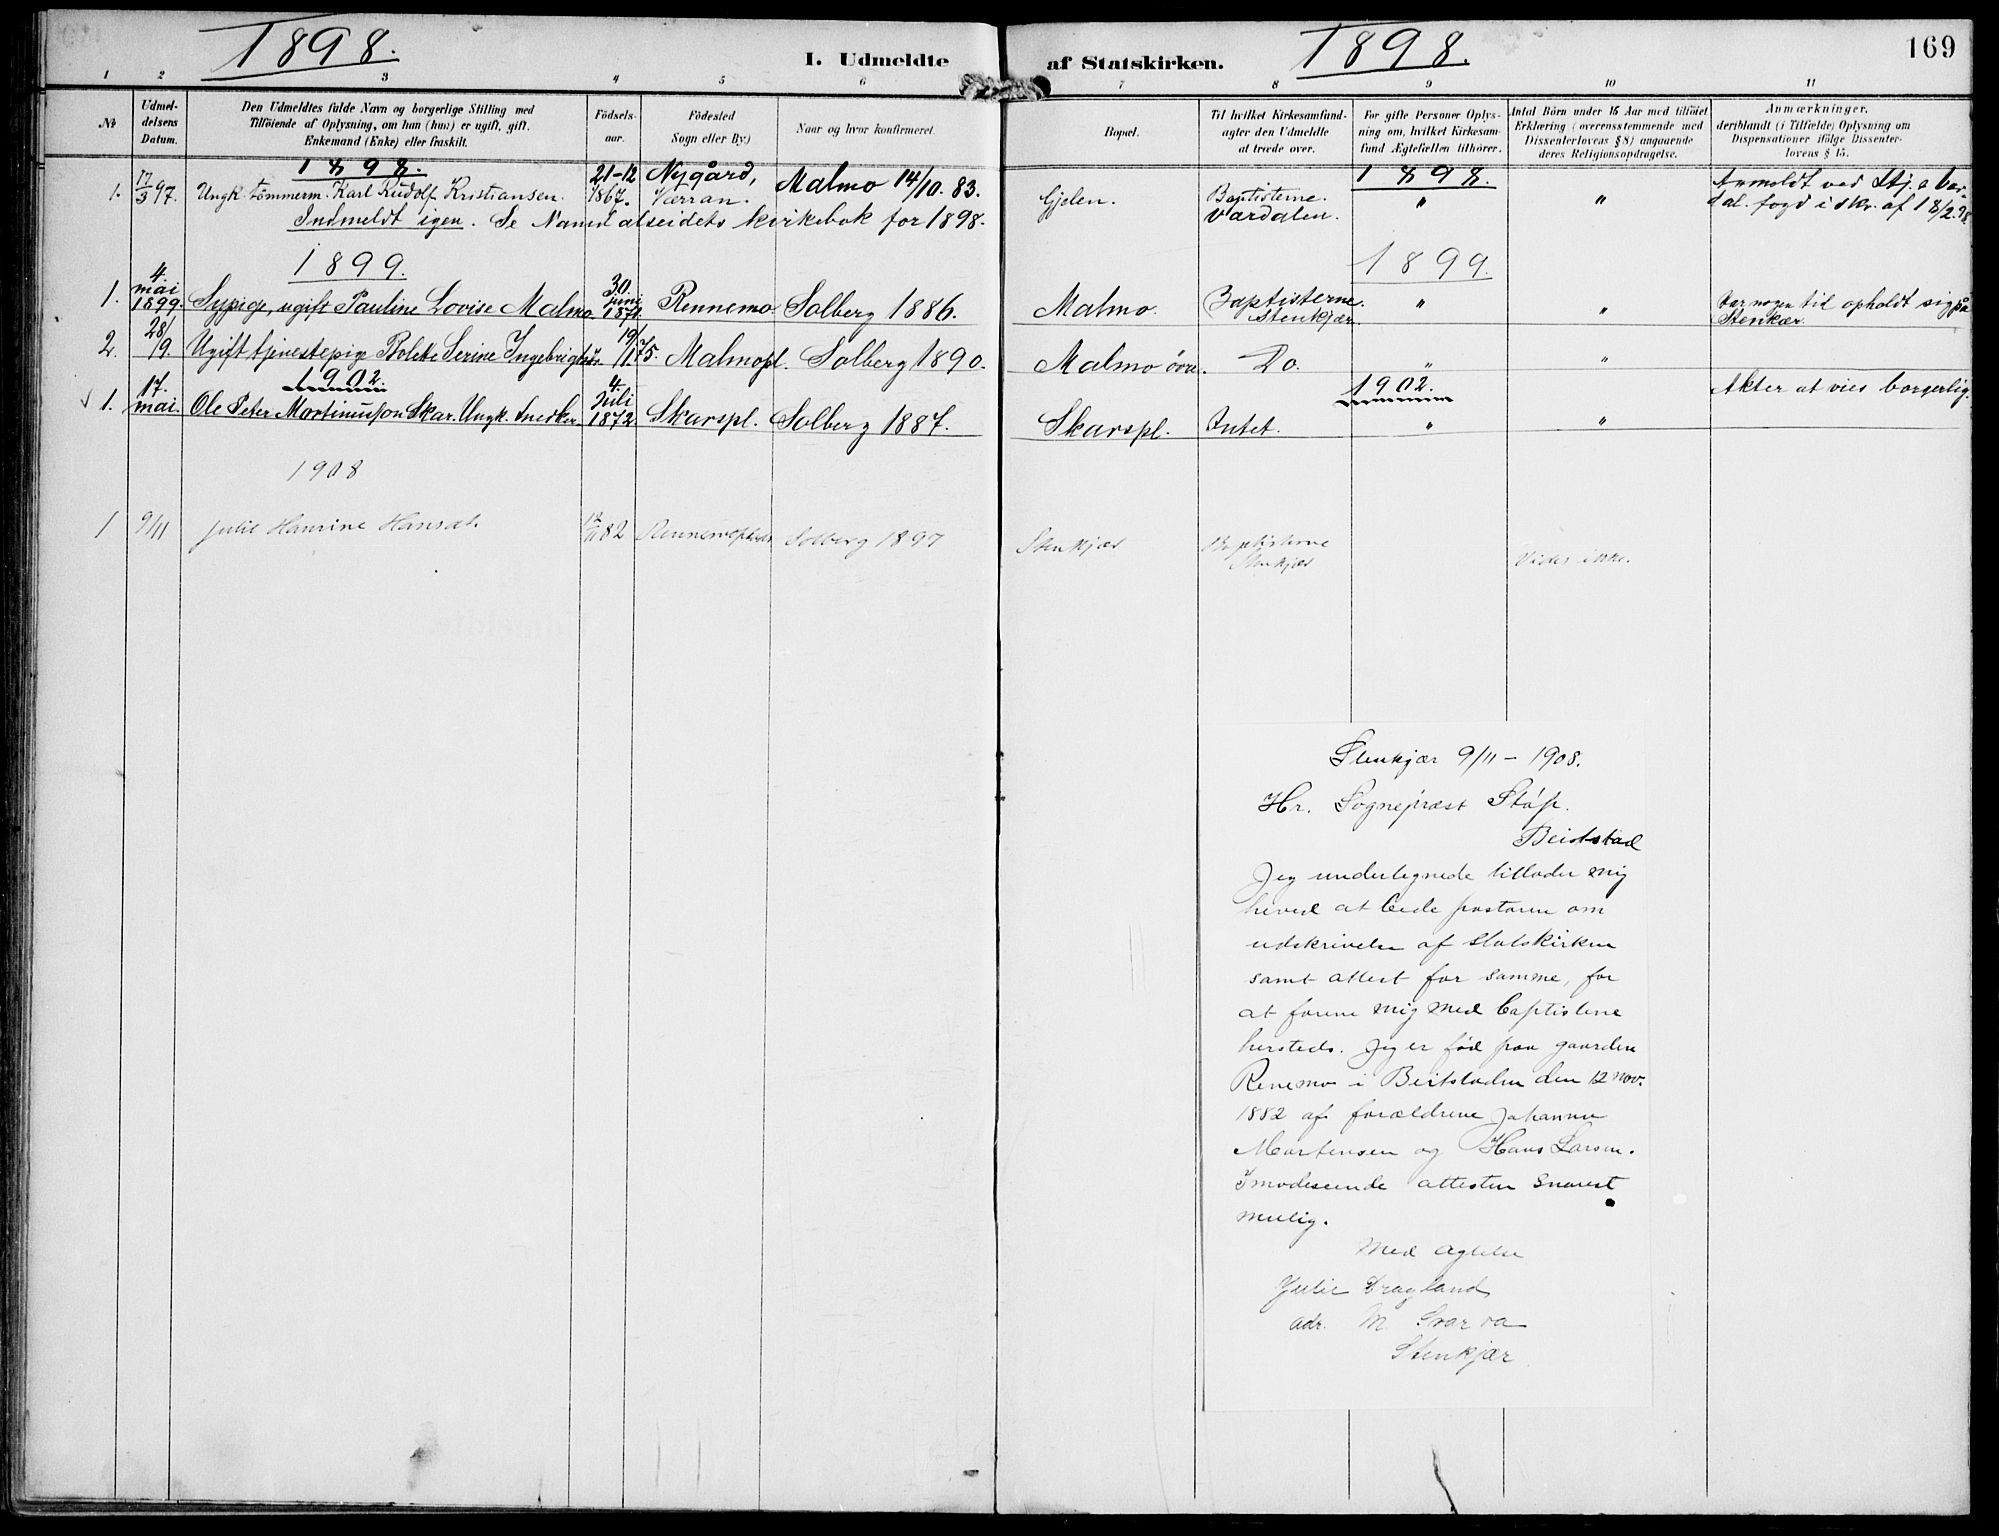 1898.
I. Udmeldte
af Statskirken.
1898.
169
1 2 3 4 5 6 7 8 9 10 11
№
Udmel-
delsens
Datum.
Den Udmeldtes fulde Navn og borgerlige Stilling med
Tilføiende af Oplysning, om han (hun) er ugift, gift,
Enkemand (Enke) eller fraskilt.
Fødsels-
aar.
Fødested
Sogn eller By.)
Naar og hvor konfirmeret.
Bopæl.
Til hvilket Kirkesamfund
agter den Udmeldte
at træde over.
For gifte Personer Oplys-
ning om, hvilket Kirkesam-
fund Ægtefællen tilhører.
Antal Børn under 15 Aar med tilføiet
Erklæring (overensstemmende med
Dissenterlovens § 8) angaaende
deres Religionsopdragelse.
Anmærkninger,
deriblandt (i Tilfælde) Oplysning om
Dispensationer ifølge Dissenter-
lovens § 15.
1898.
1898.
1. 17/3 97. Ungk. tømmerm. Karl Rudolf Kristiansen. 21-12 1867. Nygård, Værran. Malmo 14/10. 83. Gjelen. Baptisterne. Værdalen. " "
Anmeldt ved Stj. &
dal. fogd i skr. af 18/2.98
Indmeldt igen. Se Namdalseidets kirkebok for 1898.
1899.
1899.
1. 4. mai 1899. Sypige, ugift Pauline Lovise Malmo. 30. juni 1871. Rennemo. Solberg 1886. Malmo. Baptisterne. Stenkjær. " " Har nogen tid opholdt sig på Stenkær.
2. 28/9. Ugift tjenestepige Bolette Serine Ingebrigtsd. 19/1 75. Malmopl. Solberg 1890. Malmo øvre. Do. " "
1902.
1902.
1. 17. mai. Ole Peter Mortinusson Skar. Ungk. Snedker. 4. Juli 1872. Skarspl. Solberg 1887. Skarspl. Intet. " " Akter at vies borgerlig.
1908
1 9/11 Julie Hansine Hansdt. 12/11 82 Solberg 1897 Stenkjær Baptisterne Stenkjær Vides ikke.
Stenkjær 9/11 – 1908.
Hr. Sognepræst Støp.
Beitstad
Jeg undertegnede tillader mig
herved at bede pastoren om
udskrivelse af statskirken
samt attest for samme, for
at forene mig med baptistene
hersteds. Jeg er fød paa gaarden
Renemo i Beitstaden den 12 nov.
1882 af forældrene Johanna
Mortensen og Hans Larsen.
Imødeseende attesten snarest
mulig.
Med agtelse
Julie Dragland
adr. M. Svarva
Stenkjær